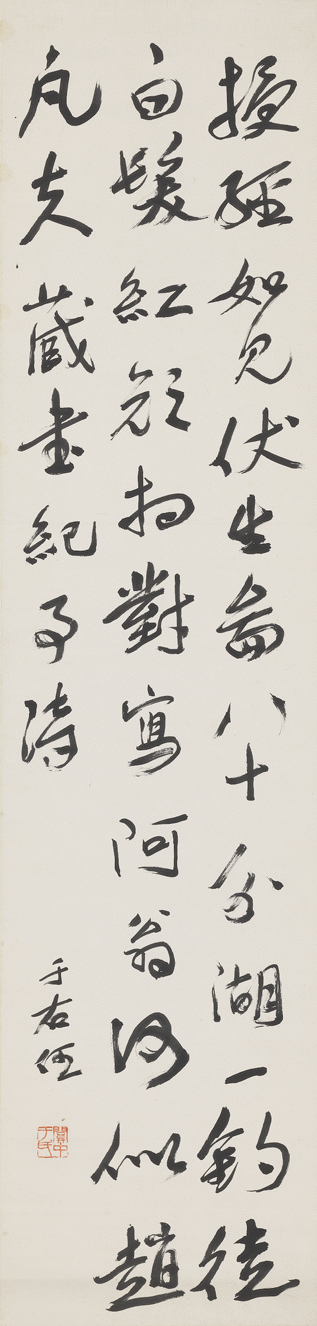 授經如見伏生啚八十分湖一釣徒
白髮紅顏相對寫阿翁何似趙
凡夫 藏書紀事詩
于右任
關中于氏